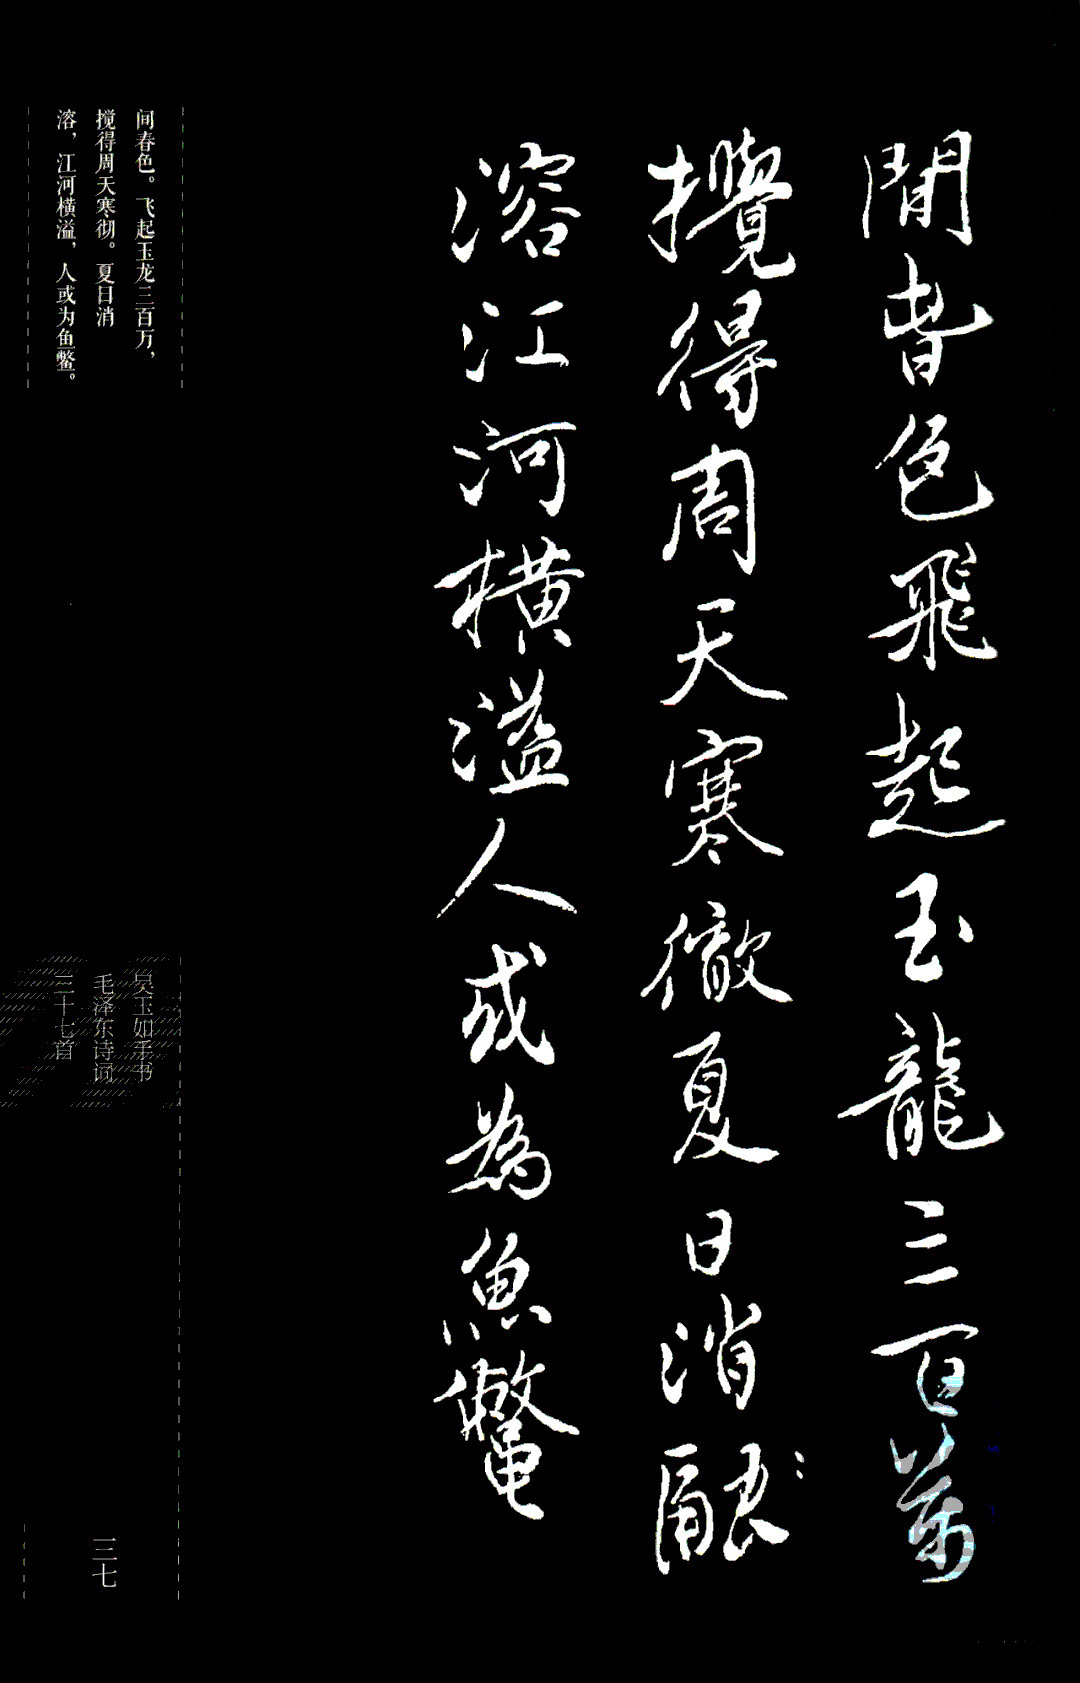 間春色飛起玉龍三百萬
攪得周天寒徹夏日消融
溶江河橫溢人或為魚鱉
间春色。飞起玉龙三百万，
搅得周天寒彻。夏日消
溶，江河横溢，人或为鱼鳖。
吴玉如手书
毛泽东诗词
三十七首
三七